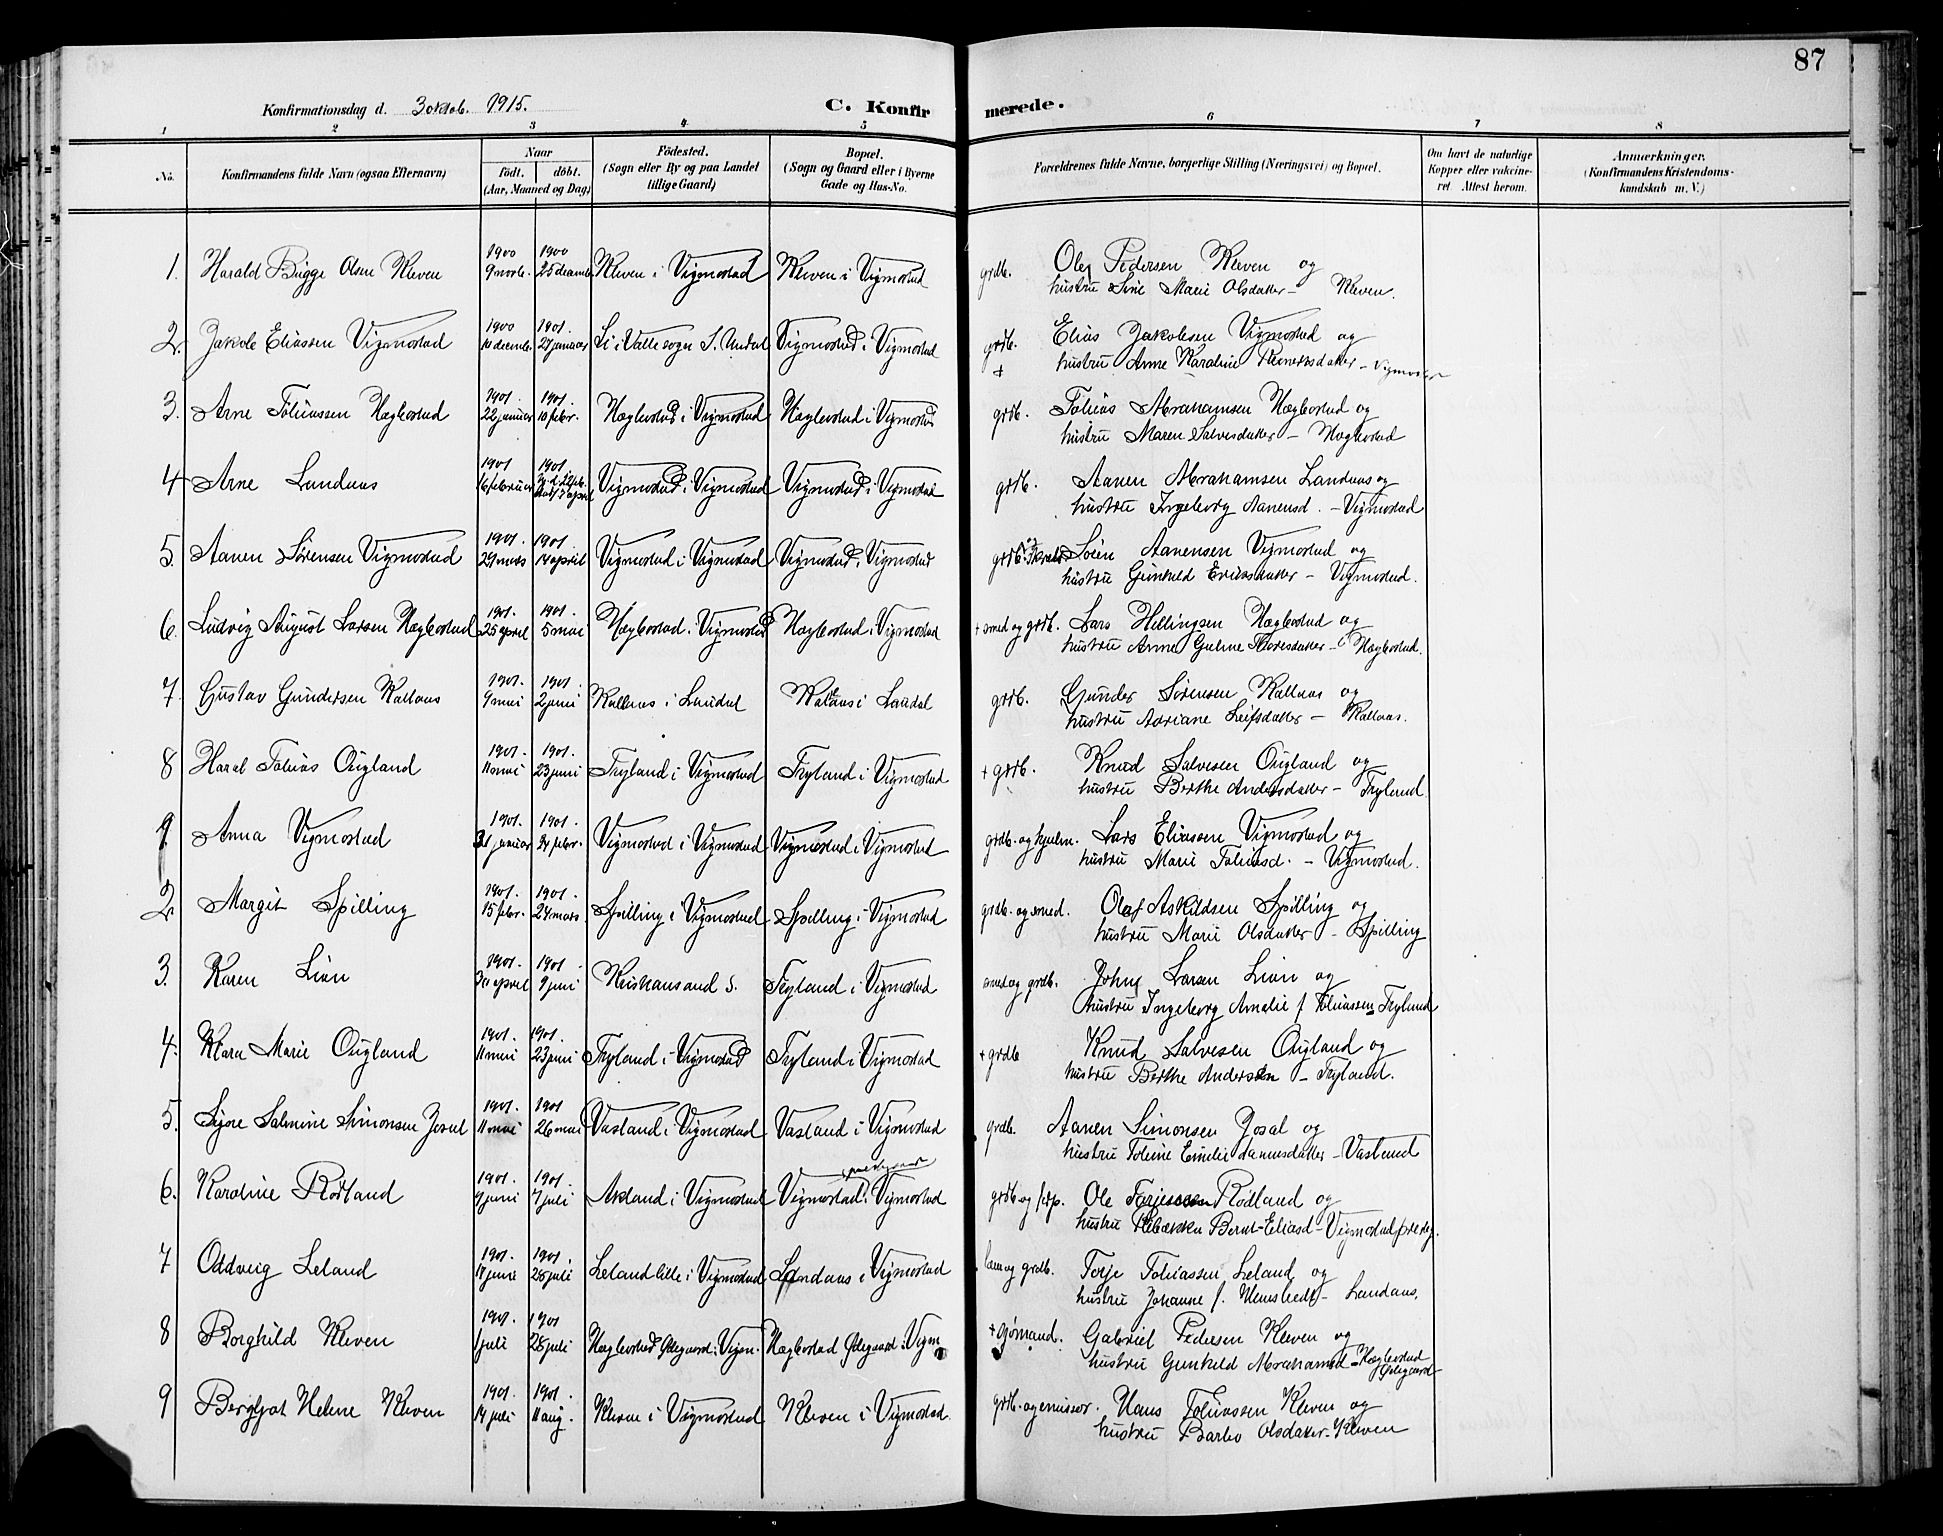 87
Konfirmationsdag d. 3 oktob. 1915.
C. Konfirmerede.
1 2 3 4 5 6 7 8
No. Konfirmandens fulde Navn (ogsaa Efternavn) Naar født. døbt. (Aar, Maaned og Dag) Fødested. (Sogn eller By og paa Landet tillige Gaard) Bopæl. (Sogn og Gaard eller i Byerne Gade og Hus-No. Forældrenes fulde Navne, borgerlige Stilling (Næringsvei) og Bopæl. Om havt de naturlige Kopper eller vakcineret. Attest herom. Anmerkninger. (Konfirmandens Kristendomskundskab m. V.)
1900 1900
1. Harald Bugge Olsen Kleven 9 novb. 25 decemb. Kleven i Vigmostad Kleven i Vigmostad grdb. Olej Pedersen Kleven og
hustru Sine Marie Olsdatter - Kleven.
1900 1901.
2. Jakob Eliassen Vigmostad 10 decemb. 27 januar Li i Valle sogn S. Undal Vigmostad i Vigmostad grdb. Elias Jakobsen Vigmostad og
+ hustru Anne Karoline Reinertsdatter - Vigmostad
1901. 1901.
3. Arne Tobiassen Hægbostad 22 januar 10 febr. Hægbostad i Vigmostad Hægbostad i Vigmostad grdb. Tobias Abrahamsen Hægbostad og
hustru Maren Salvesdatter - Hægbostad
1901 1901
4 Arne Landaas 16 februar 7 april Vigmostad i Vigmostad Vigmostad i Vigmostad grdb. Aanen Abrahamsen Landaas og
hustru Ingeborg Aanensd. - Vigmostad
1901. 1901.
5. Aanen Sørensen Vigmostad 29 mars 14 april Vigmostad i Vigmostad Vigmostad i Vigmostad grdb. Søren Aanensen Vigmostad og
hustru Gunhild Eriksdatter - Vigmostad.
1901. 1901.
6. Ludvig August Larsen Hægbostad 25 april 5 mai Hægbostad i Vigmostad Hægbostad i Vigmostad + smed og grdb. Lars Hellingsen Hægbostad og
hustru Anne Guline Toresdatter - Hægbostad.
1901. 1901.
7. Gustav Gundersen Kallaas 9 mai 2 juni Kallaas i Laudal Kallaas i Laudal grdb. Gunder Sørensen Kallaas og
hustru Adriane Leifsdatter - Kallaas.
1901. 1901.
8 Haral Tobias Øigland 11 mai 23 juni Tryland i Vigmostad Tryland i Vigmostad + grdb. Knud Salvesen Øigland og
hustru Berthe Andersdatter - Tryland.
1901. 1901.
1. Anna Vigmostad 31 januar 24 febr. Vigmostad i Vigmostad Vigmostad i Vigmostad grdb. og hjulm. Lars Eliassen Vigmostad og
hustru Marie Tobiasd. - Vigmostad.
1901. 1901.
2 Margit Spilling 15 febr. 24 mars. Spilling i Vigmostad Spilling i Vigmostad grdb. og smed. Olaf Askildsen Spilling og
hustru Marie Olsdatter - Spilling
1901. 1901.
3. Karen Lian 30 april 9 juni Kristiansand S. Tryland i Vigmostad smed og grdb. John Larsen Lian og
hustru Ingeborg Amalie f. Tobiassen Tryland
1901. 1901.
4. Klara Marie Øigland 11 mai 23 juni Tryland i Vigmostad Tryland i Vigmostad + grdb Knud Salvesen Øigland og
hustru Berthe Andersen - Tryland.
1901. 1901
5. Signe Salmine Simonsen Josal 11 mai 26 mai Vasland i Vigmostad Vasland i Vigmostad grdb. Aanen Simonsen Josal og
hustru Toline Emilie Aanensdatter - Vasland
1901. 1901.
6. Karoline Rødland 9 juni 7 juli Askland i Vigmostad Vigmostad prestegaard i Vigmostad grdb og forp. Ole Torjessen Rødland og
hustru Rebekka Bernt-Eliasd - Vigmostad presteg.
1901. 1901.
7 Oddveig Leland 17 juni 28 juli Leland lille i Vigmostad Landaas i Vigmostad grdb. Torje Tobiassen Leland og
hustru Johanne f. Ulmstedt - Landaas.
1901. 1901
8 Borghild Kleven 1 juli 28 juli Hægbostad Ødegaard i Vigm. Hægbostad Ødegaard i Vigm + sjømand. Gabriel Pedersen Kleven og
hustru Gunhild Abrahamsd - Hægbostad Ødegaard
1901. 1901.
9 Bergljot Helene Kleven 14 juli 11 aug. Kleven i Vigmostad Kleven i Vigmostad. grdb. og emissær. Hans Tobiassen Kleven og
hustru Barbo Olsdatter - Kleven